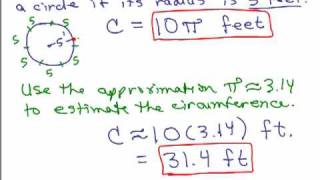 a circle if its radius is 5 feet.
C = 10π feet
5 5 5 5 5 5 5
Use the approximation π ≈ 3.14
to estimate the circumference.
C ≈ 10(3.14) ft.
= 31.4 ft